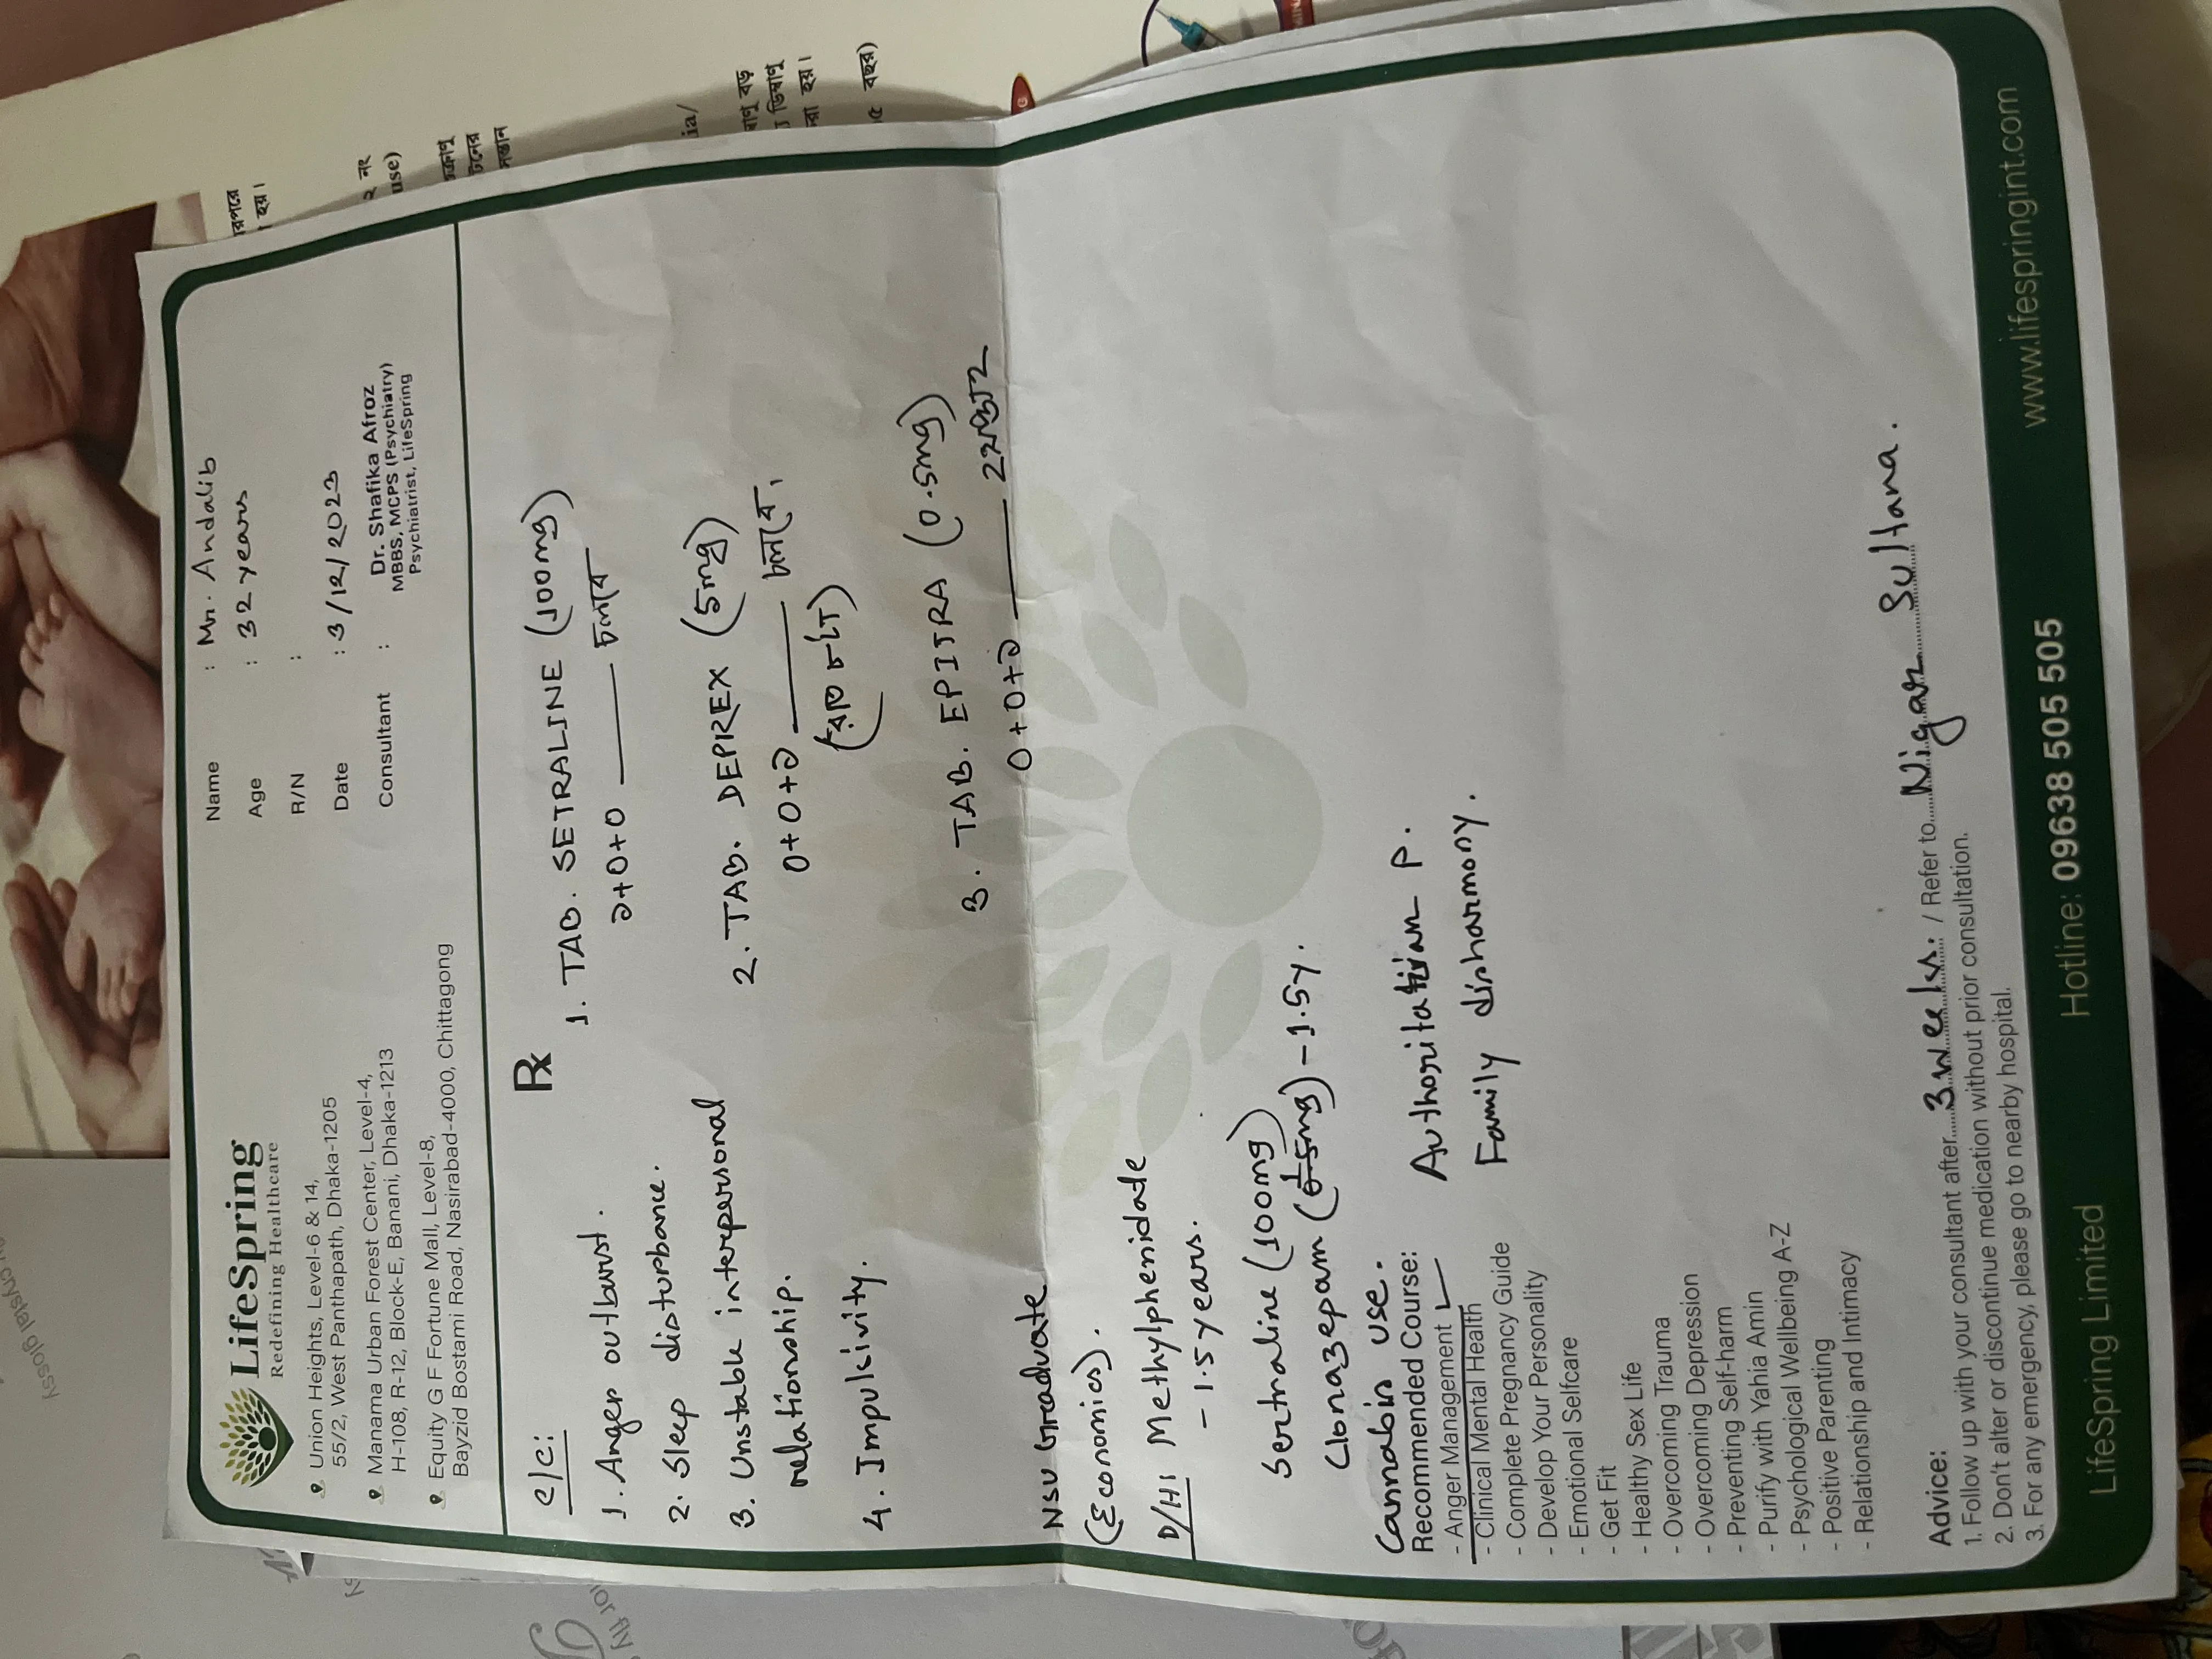 LifeSpring
Redefining Healthcare
Union Heights, Level-6 & 14,
55/2, West Panthapath, Dhaka-1205
Manama Urban Forest Center, Level-4,
H-108, R-12, Block-E, Banani, Dhaka-1213
Equity G F Fortune Mall, Level-8,
Bayzid Bostami Road, Nasirabad-4000, Chittagong
Name : Mr. Andalib
Age : 32 years
R/N :
Date : 3/12/2023
Consultant : Dr. Shafika Afroz
MBBS, MCPS (Psychiatry)
Psychiatrist, LifeSpring
C/C:
1. Anger outburst.
2. Sleep disturbance.
3. Unstable interpersonal
relationship.
4. Impulsivity.
NSU Graduate
(Economics).
D/H: Methylphenidate
- 1.5 years.
Sertraline (100mg)
Clonazepam (0.5mg) - 1.5y.
Cannabis use.
Rx
1. TAB. SETRALINE (100mg)
১+0+0 চলবে
2. TAB. DEPREX (5mg)
0+0+১ চলবে।
3. TAB. EPITRA (0.5mg)
0+0+১
Authoritarian P.
Family disharmony.
Recommended Course:
- Anger Management
- Clinical Mental Health
- Complete Pregnancy Guide
- Develop Your Personality
- Emotional Selfcare
- Get Fit
- Healthy Sex Life
- Overcoming Trauma
- Overcoming Depression
- Preventing Self-harm
- Purify with Yahia Amin
- Psychological Wellbeing A-Z
- Positive Parenting
- Relationship and Intimacy
Advice:
1. Follow up with your consultant after 3 weeks. / Refer to Nigar Sultana.
2. Don't alter or discontinue medication without prior consultation.
3. For any emergency, please go to nearby hospital.
LifeSpring Limited
Hotline: 09638 505 505
www.lifespringint.com